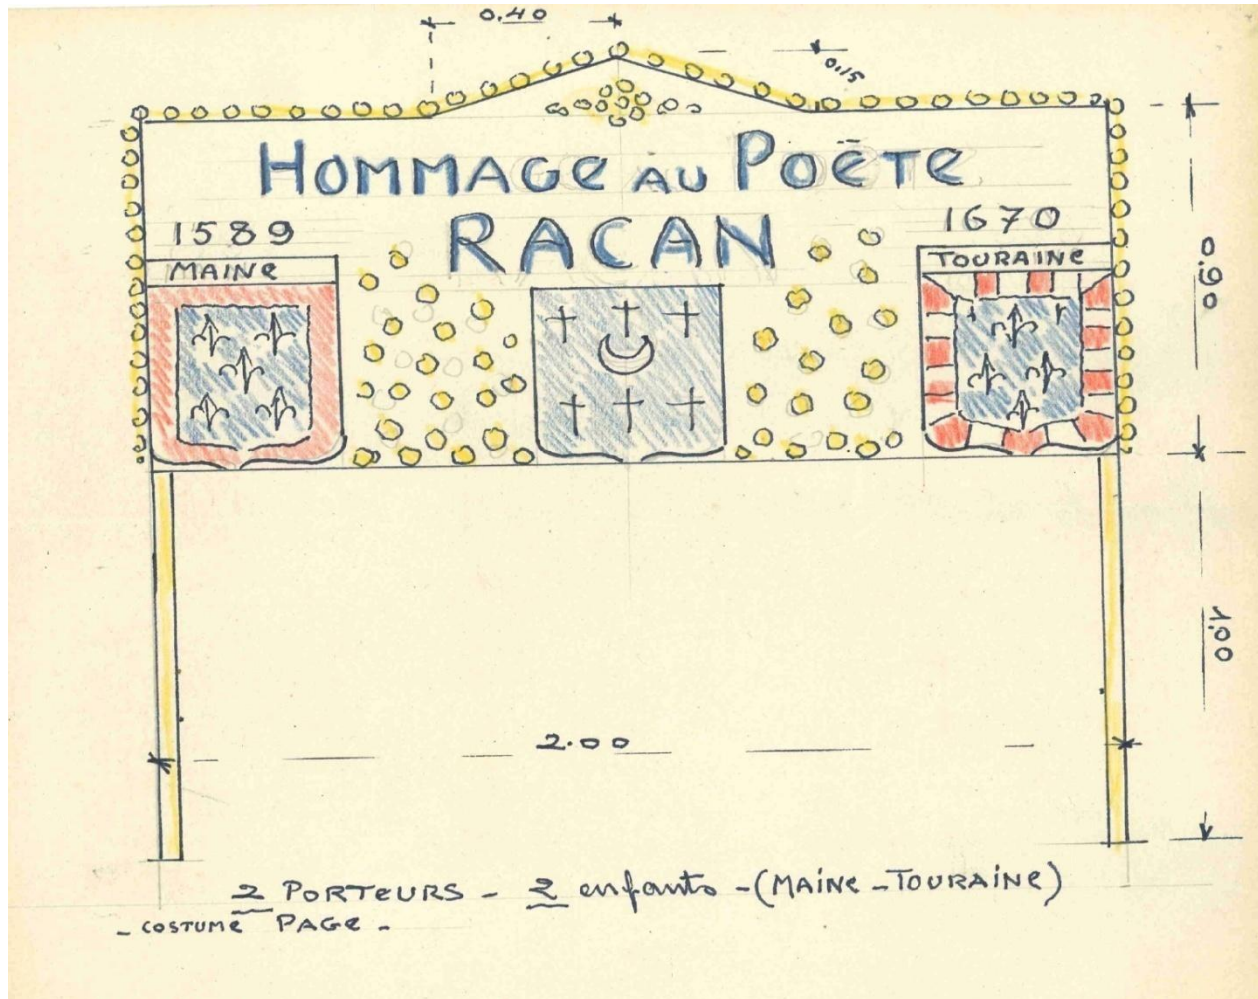 0.40
0.15
HOMMAGE AU POËTE
RACAN
1589
1670
MAINE
TOURAINE
0.90
1.00
2.00
2 PORTEURS - 2 enfants - (MAINE - TOURAINE)
- COSTUME PAGE -